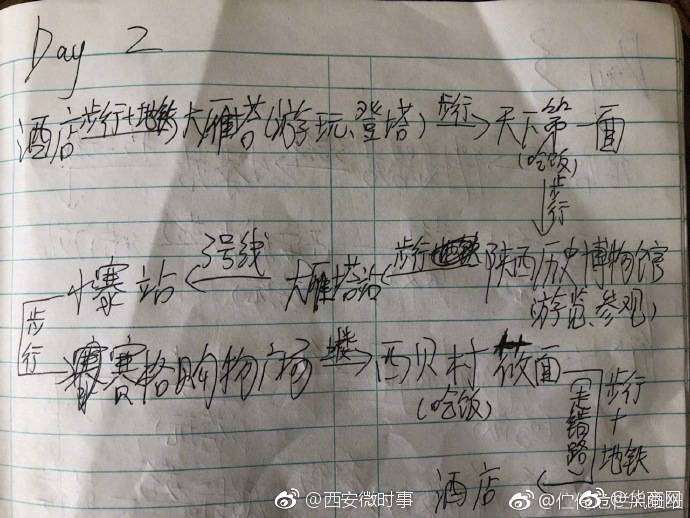 Day 2
酒店 步行+地铁 大雁塔(游玩、登塔) 步行 天下第一面
(吃饭)
步行
小寨站 3号线 大雁塔站 步行 陕西历史博物馆
(游览、参观)
步行
赛格购物广场 楼 西贝村 莜面
(吃饭)
步行
+
地铁
酒店
@西安微时事
@华商网